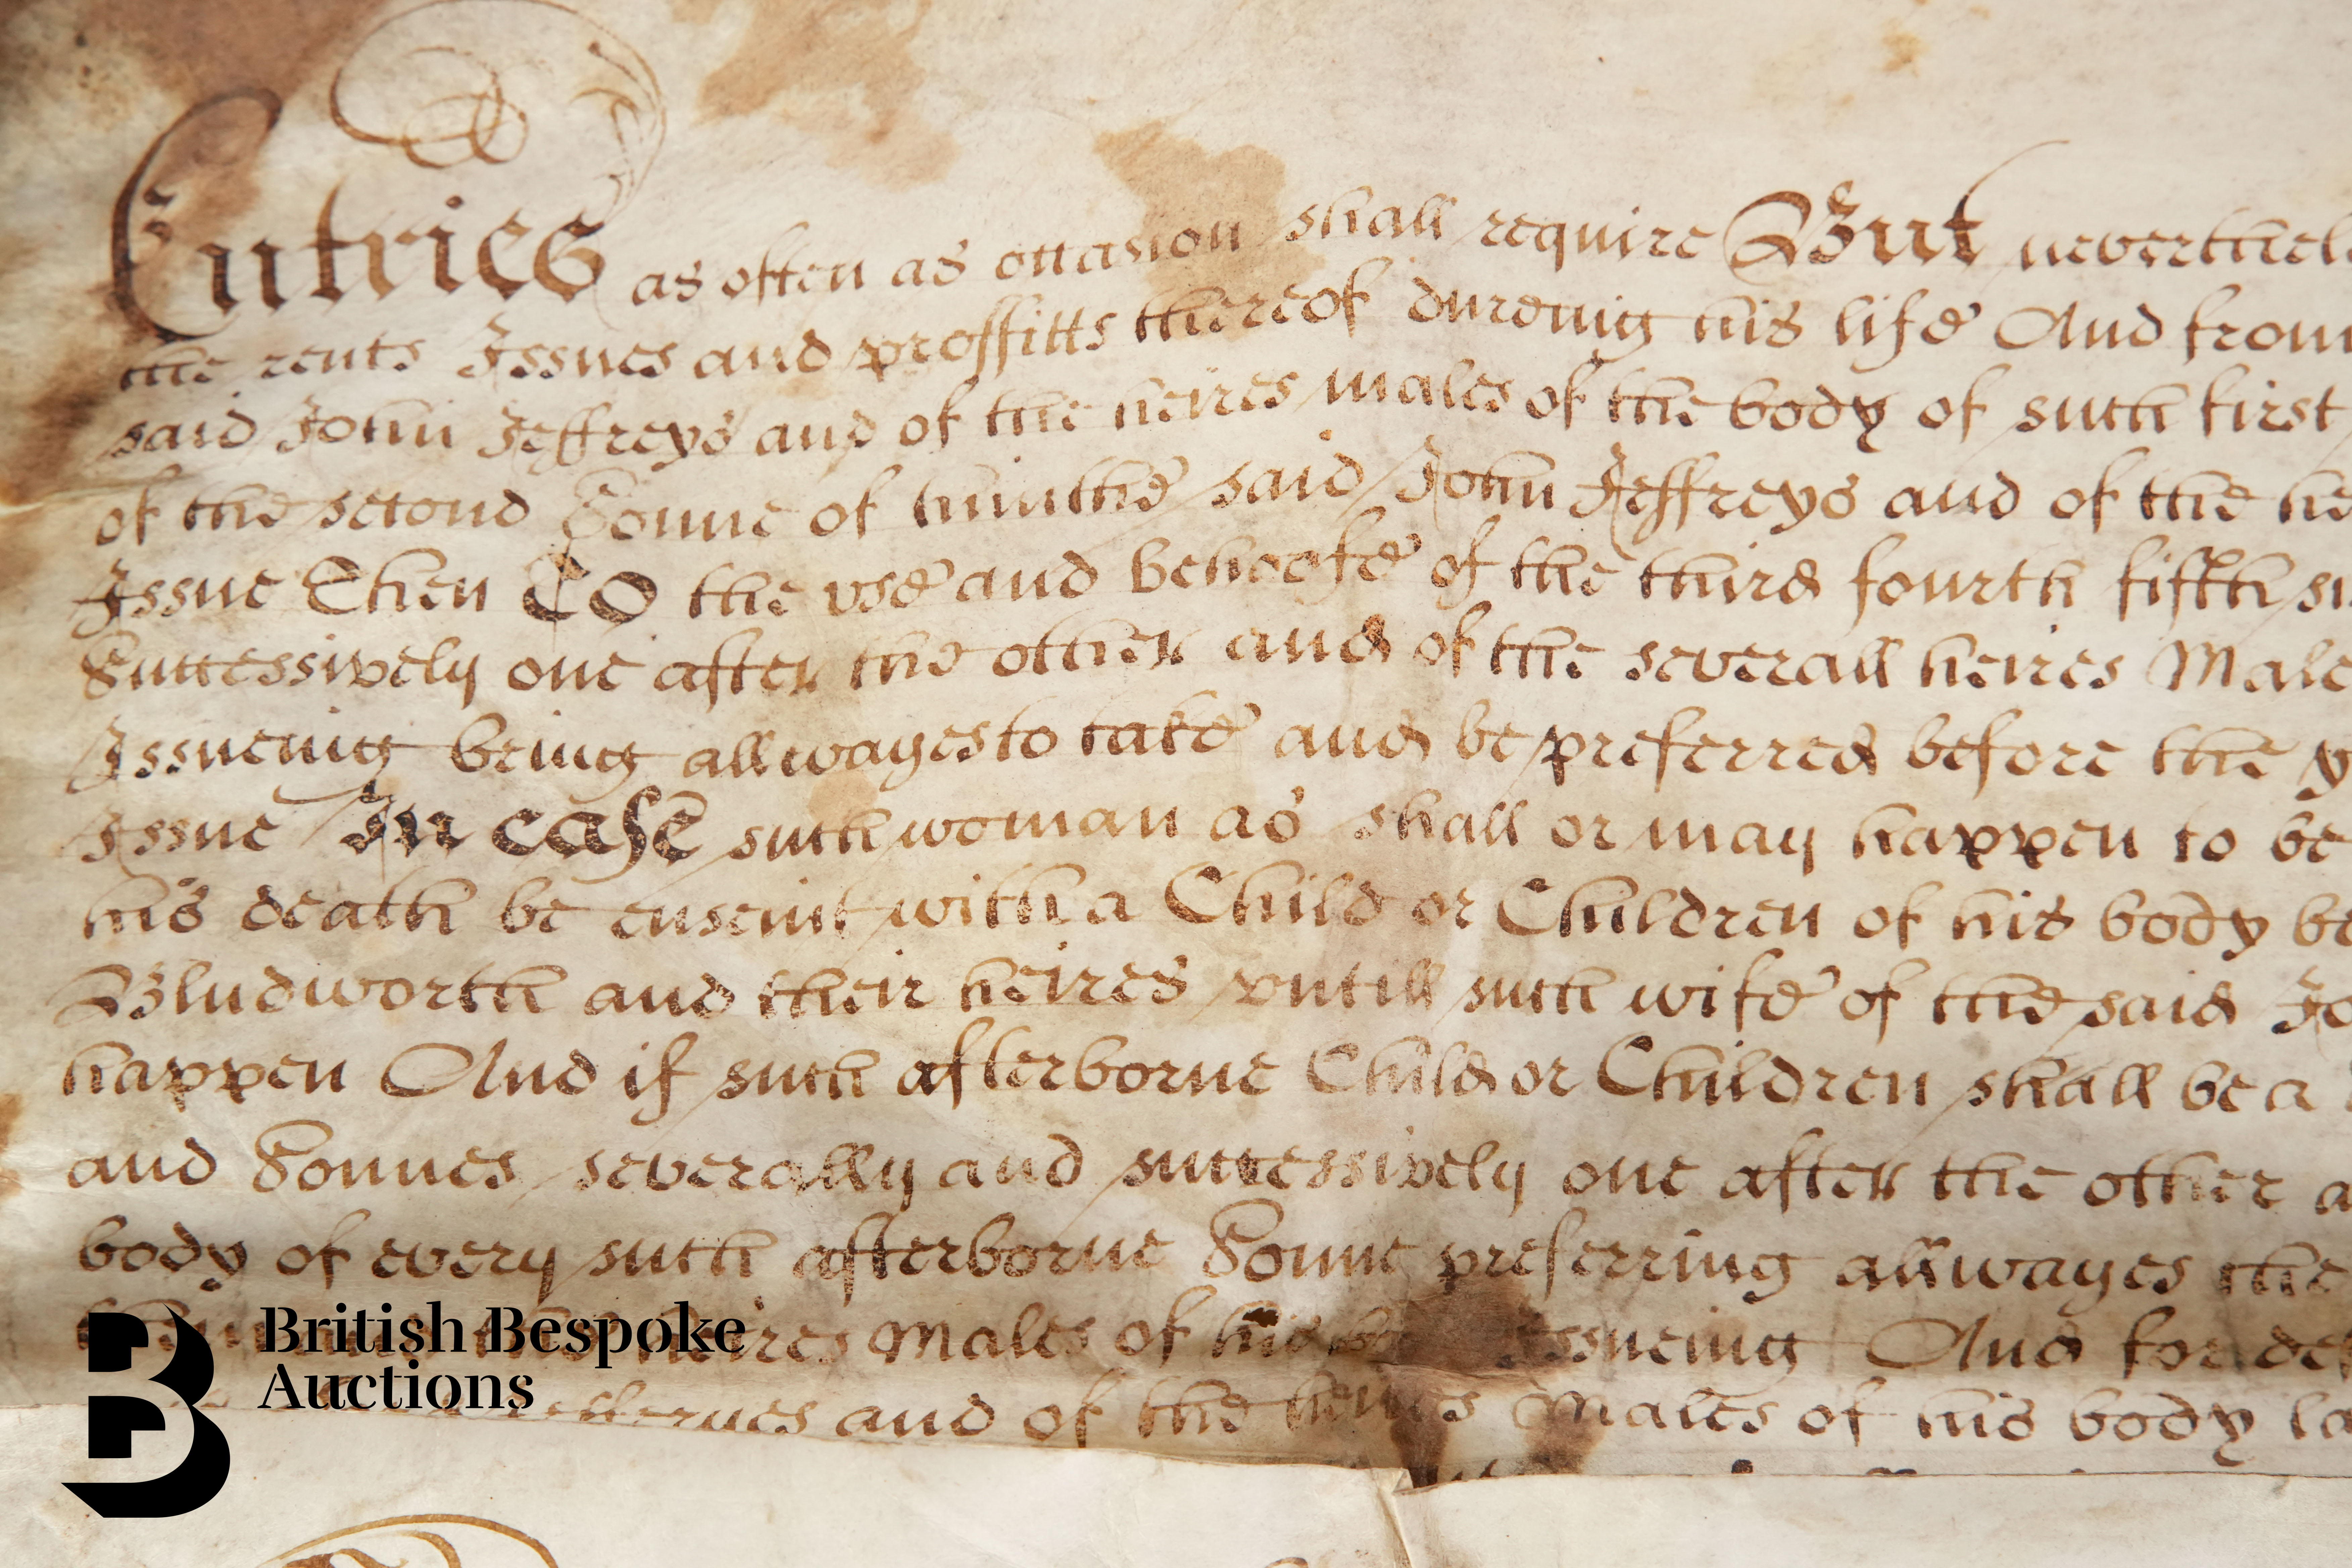 Entries as often as occasion shall require But neverthel
the rents Issues and proffitts thereof dureing his life And from
said John Jeffreys and of the heires males of the body of such first
of the second Sonne of him the said John Jeffreys and of the he
Issue Then To the vse and behoofe of the third fourth fifth si
Successively one after the other and of the severall heires Male
Issueing being allwayes to take and be preferred before the y
Issue In case such woman as shall or may happen to be
his death be enseint with a Child or Children of his body be
Bludworth and their heires vntill such wife of the said Jo
happen And if such afterborne Child or Children shall be a
and Sonnes severally and successively one after the other a
body of every such afterborne Sonne preferring allwayes the
heires Males of his Issueing And for de
and of the heires Males of his body la
British Bespoke
Auctions